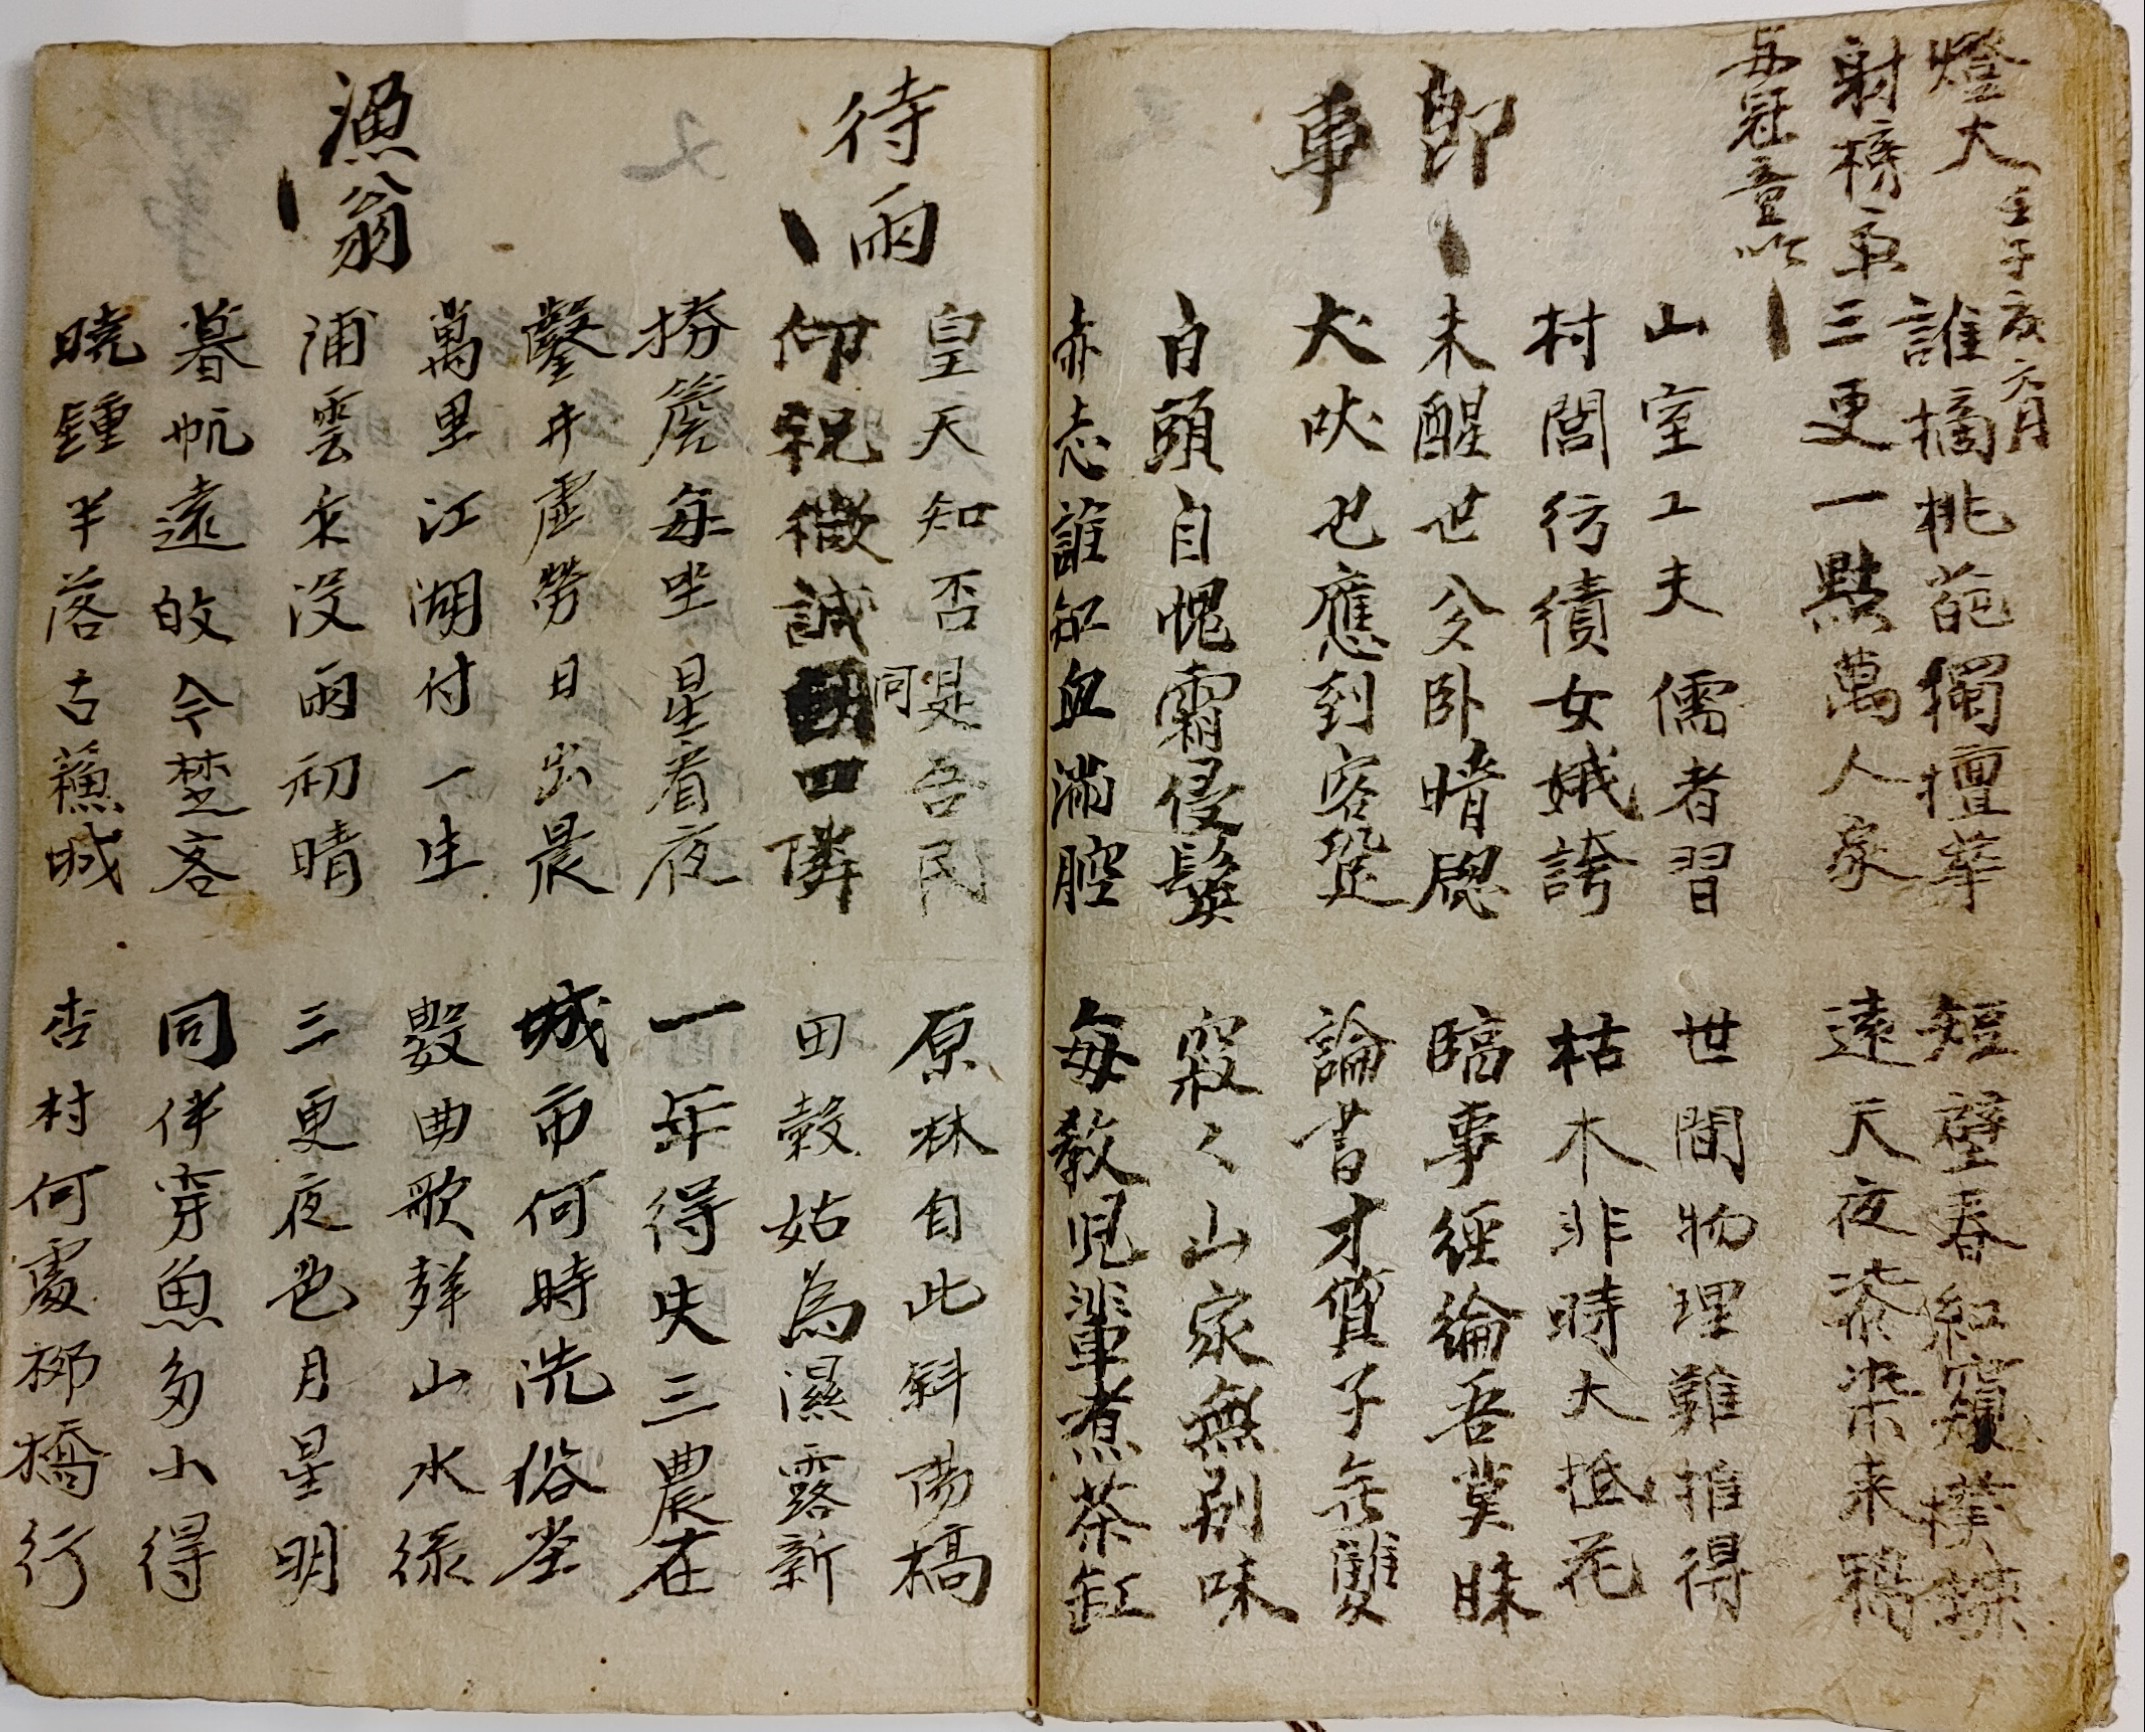 燈大
壬子 元月
誰摘桃葩獨擅華 短壁春紅
射榜 三更一點萬人家 遠天夜 染来鴉
与冠童吟
山室工夫儒者習 世間物理難推得
村閭行績女娥誇 枯木非時大抵花
即事
未醒世 臥暗窓 臨事經綸吾莫昧
犬吠也應到客跫 論書才質子無雙
白頭自愧霜侵鬢 寂々山家無別味
赤志誰知血滿腔 每敎兒輩煮茶缸
待雨
皇天知否是吾民 原林自此斜陽槁
仰祝微誠同四隣 田穀姑為濕露新
捲簷每坐星看夜 一年得失三農在
鑿井虛勞日出晨 城市何時洗俗塵
漁翁
萬里江湖付一生 數曲歌聲山水綠
浦雲 沒雨初晴 三更夜色月星明
暮帆遠 今楚客 同伴穿魚多小得
曉鍾半落古蘓城 杏村何處柳橋行